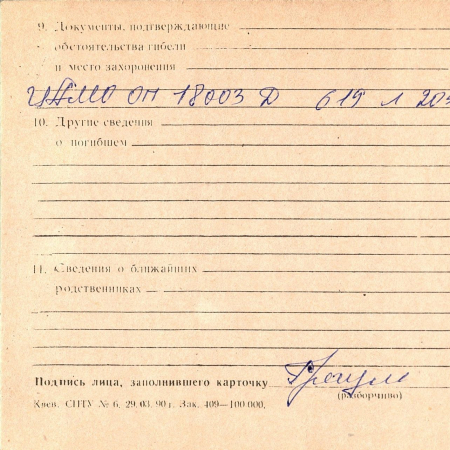 9. Документы, подтверждающие
обстоятельства гибели
и место захоронения
ЦАМО оп 18003 Д 619 л 203
10. Другие сведения
о погибшем
11. Сведения о ближайших
родственниках
Подпись лица, заполнившего карточку
(разборчиво)
Киев. СПТУ № 6. 29. 03. 90 г. Зак. 409—100 000.